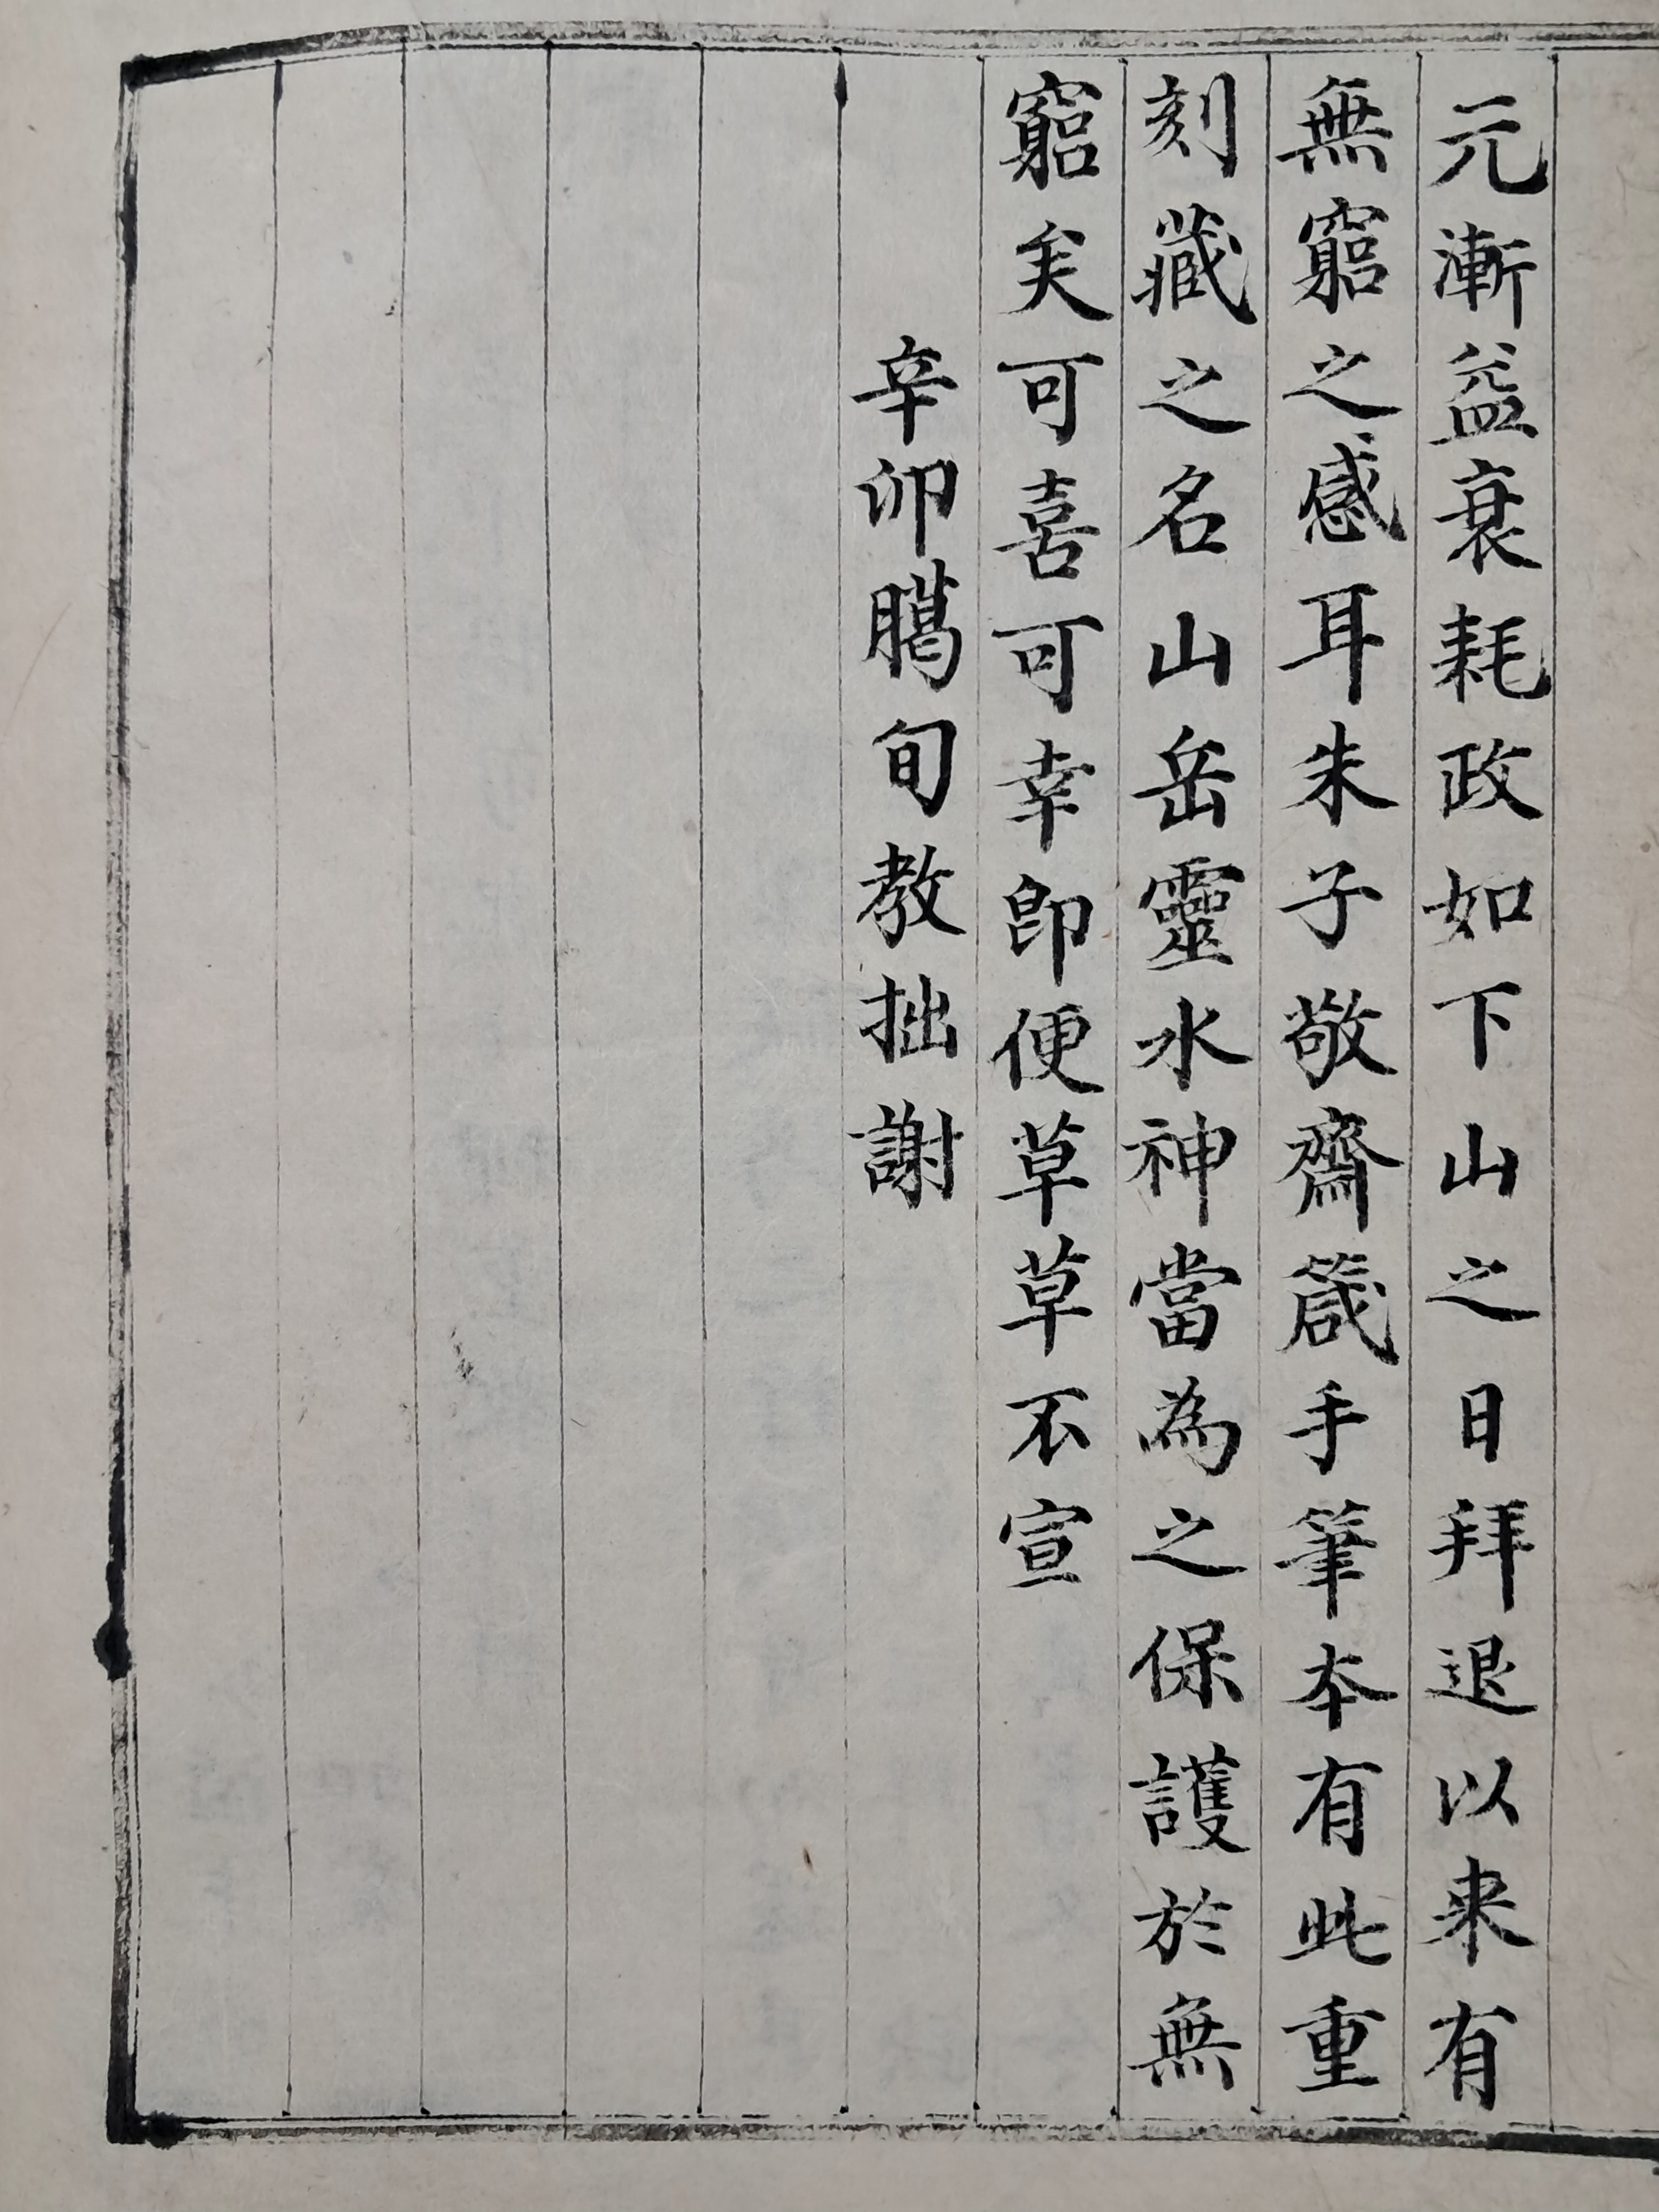 元漸益衰耗政如下山之日拜退以来有
無窮之感耳朱子敬齋箴手筆本有此重
刻藏之名山岳靈水神當為之保護於無
窮矣可喜可幸即便草草不宣
辛卯臈旬教拙謝